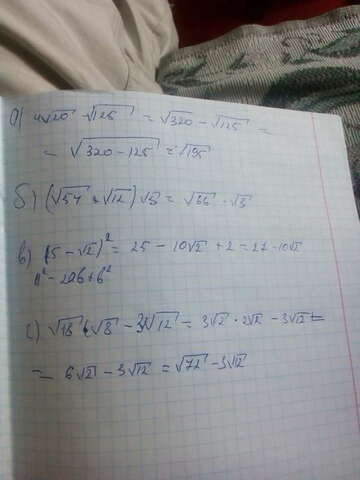 а) 4√20 - √125 = √320 - √125 =
= √320-125 = √195
б) (√54 + √12) √3 = √66 · √3
в) (5 - √2)² = 25 - 10√2 + 2 = 27 - 10√2
a² - 2ab + b²
с) √18 (√8 - 3√12 = 3√2 · 2√2 - 3√12 =
= 6√2 - 3√12 = √72 - 3√12